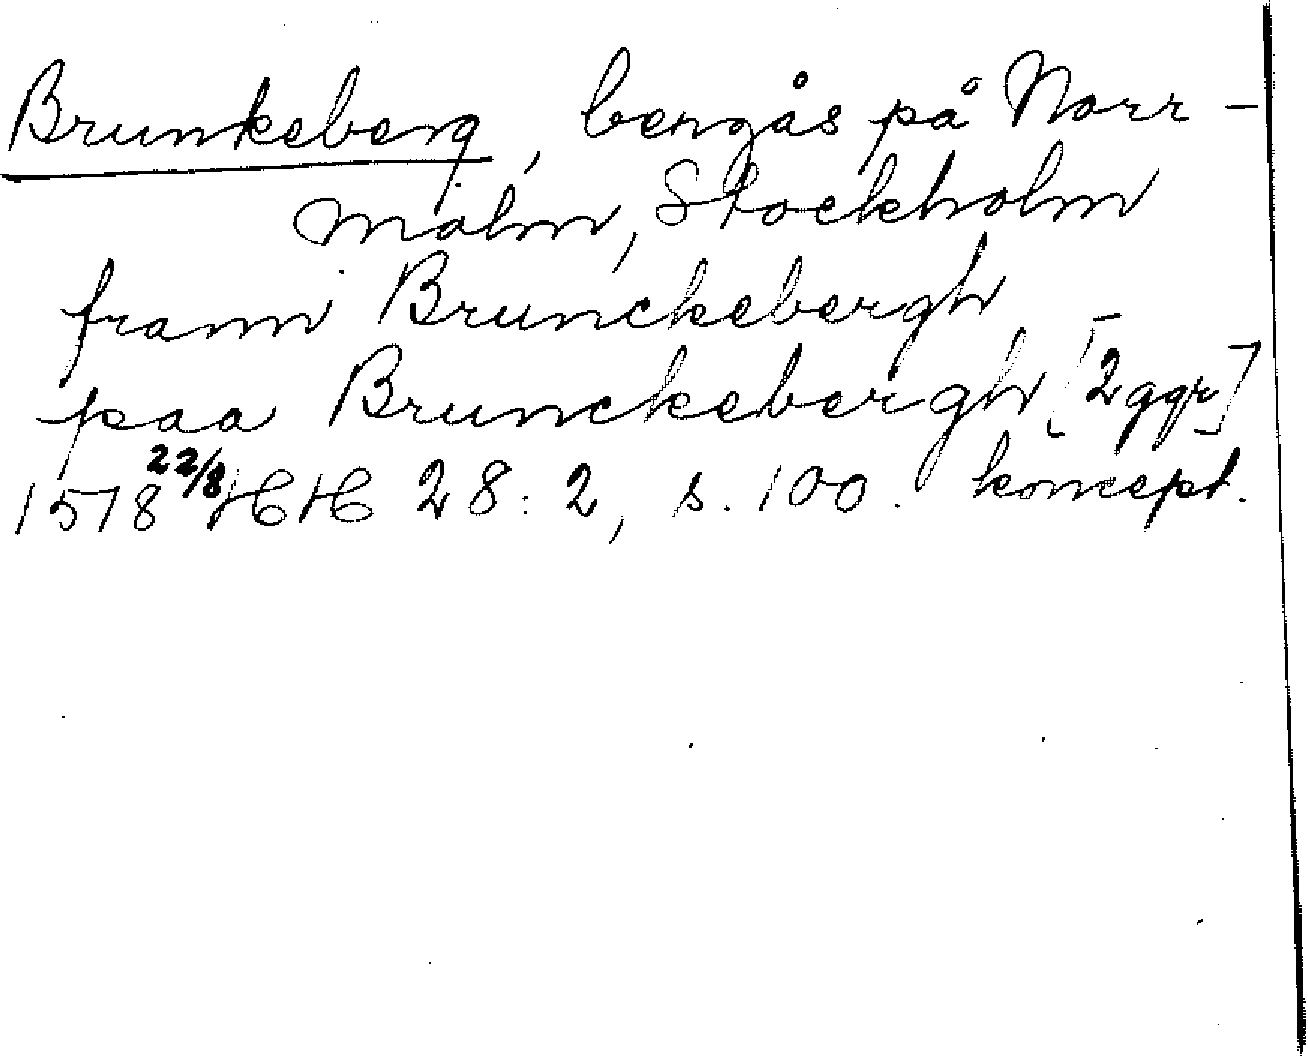 Brunkeberg, bergås på Norr-
malm, Stockholm
fram Brunckebergh
paa Brunckebergh [2 ggr]
1578 22/8 HH 28:2, s. 100. koncept.